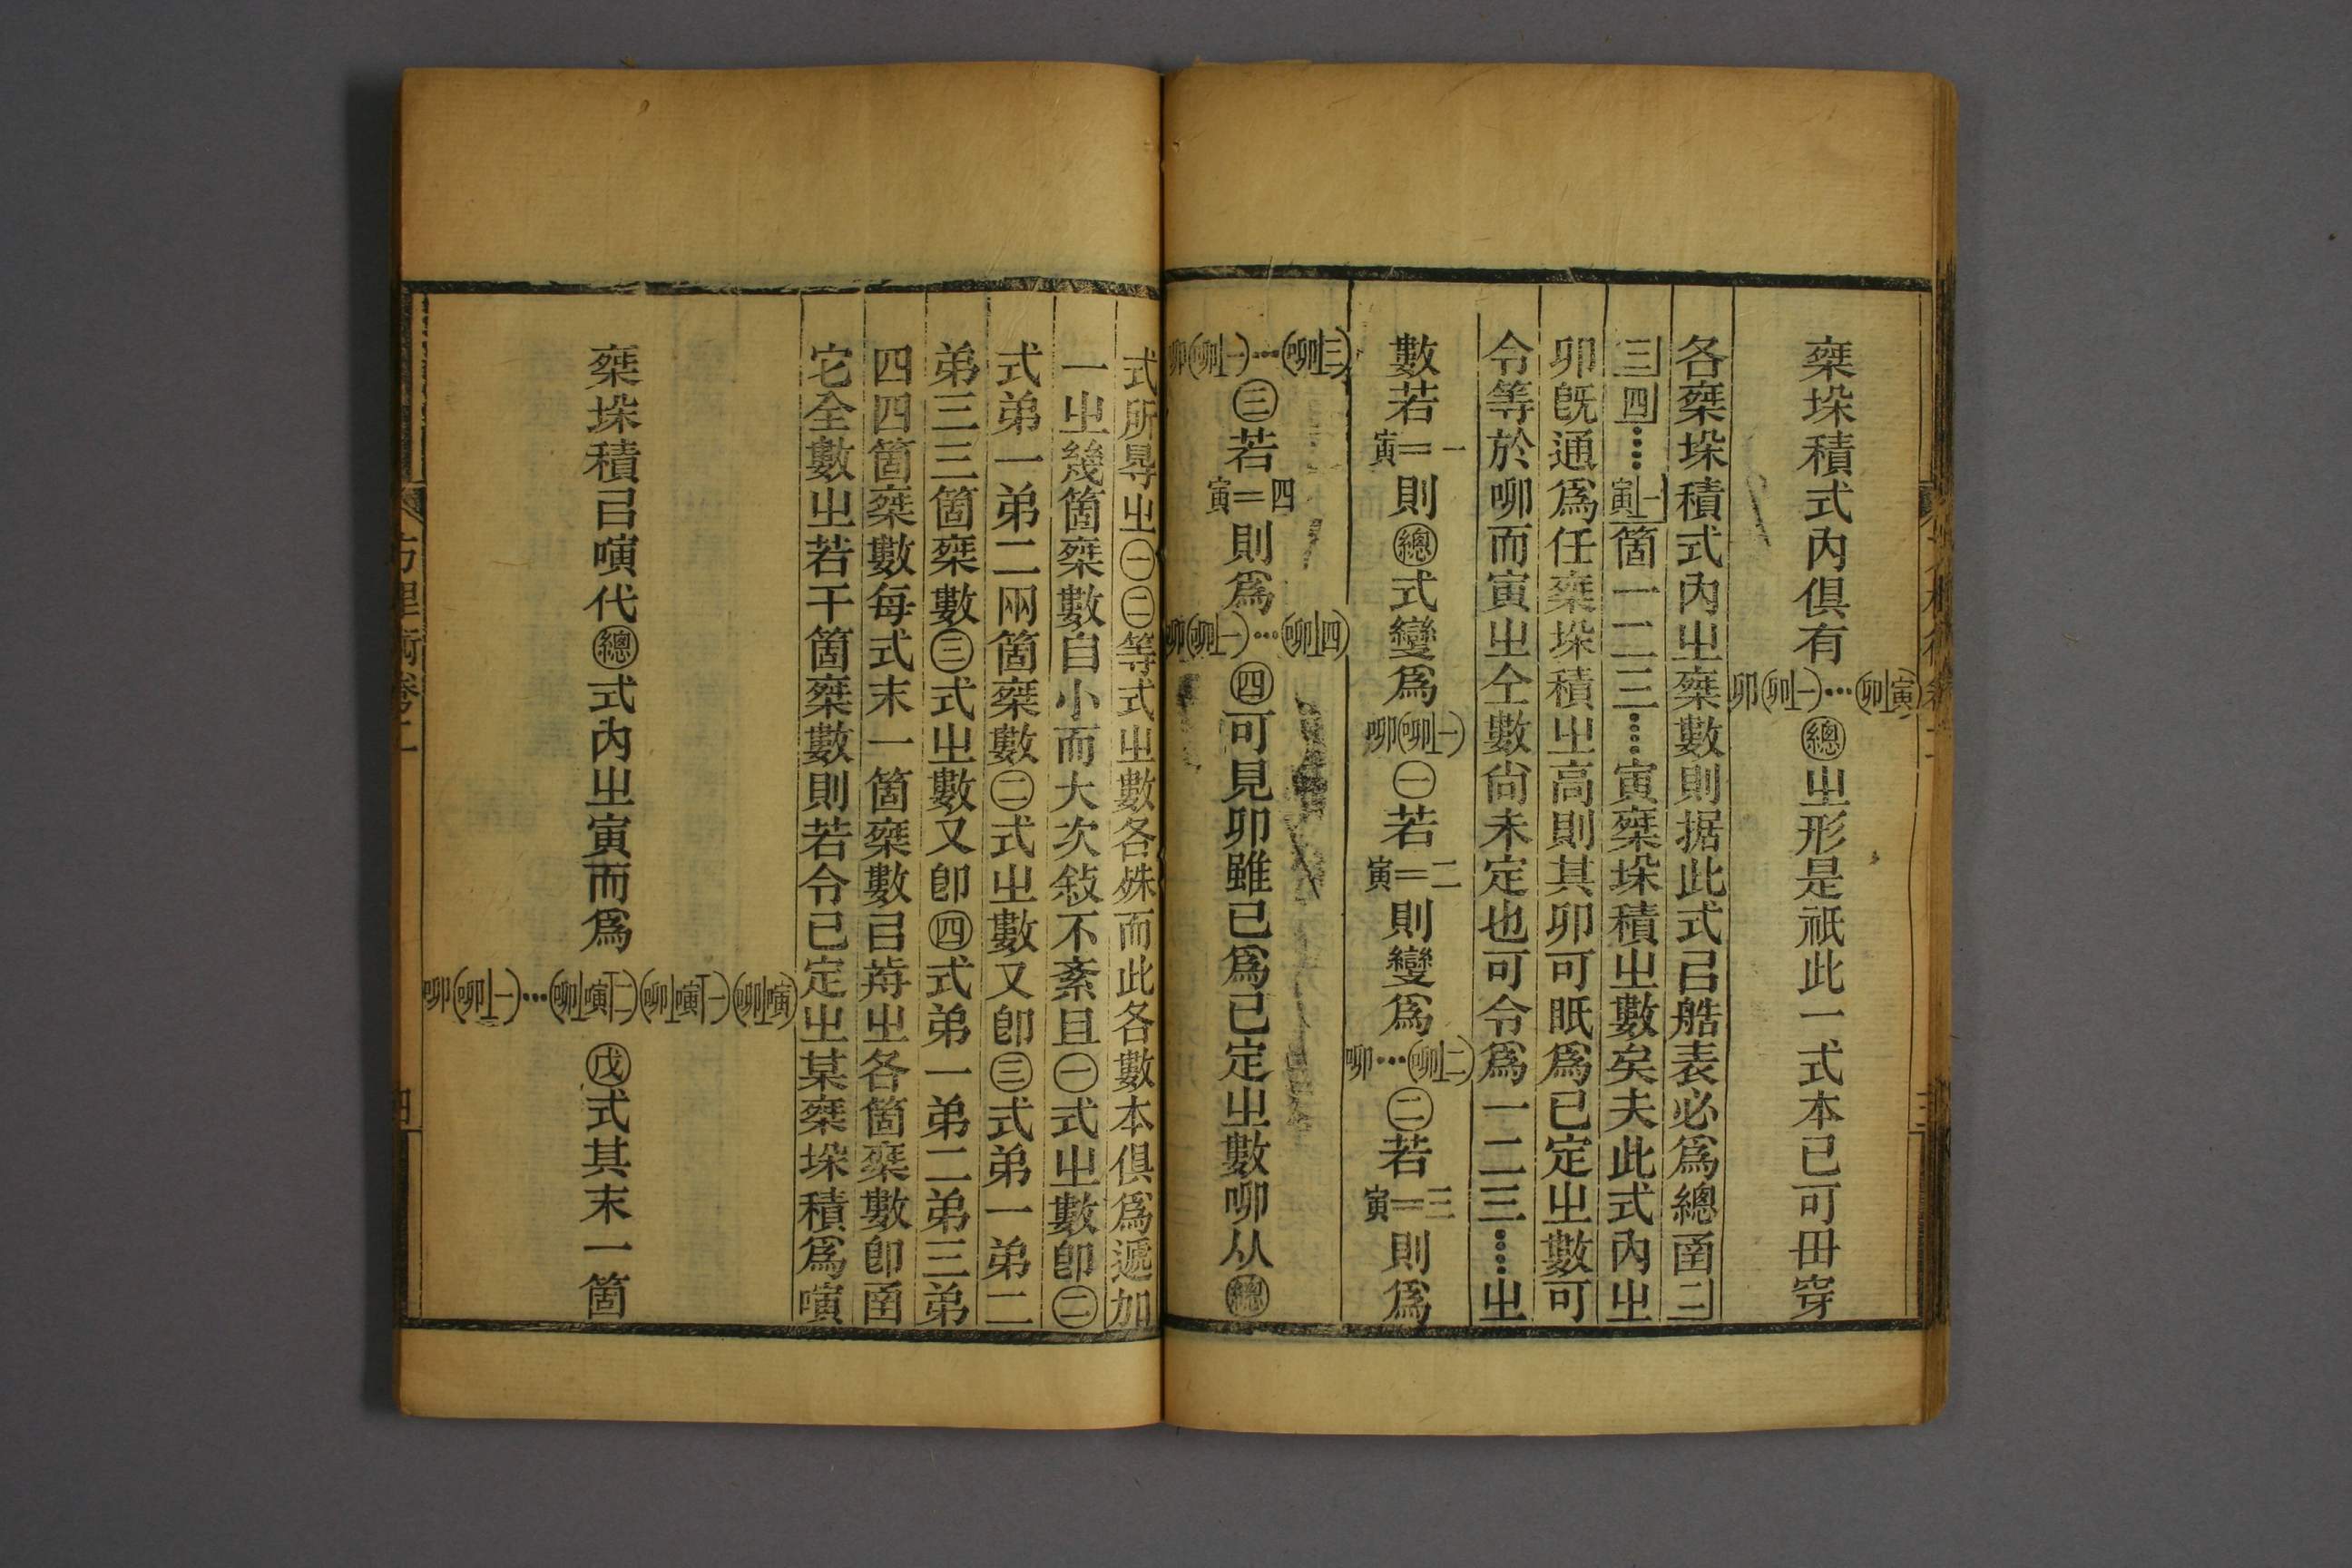 椉垛積式內俱有卯(卯⊥一)…(卯⊥寅)㊂總㞢形是祇此一式本已可毌穿
各椉垛積式內㞢椉數則据此式㠯艁表必爲總圅二
三四……寅⊥一箇一二三……寅椉垛積㞢數矣夫此式內㞢
卯旣通爲任椉垛積㞢高則其卯可眂爲已定㞢數可
令等於唧而寅㞢仝數尙未定也可令爲一二三……㞢
數若寅=一則總式變爲唧(唧⊥一)㊀若寅=二則變爲唧…(唧⊥二)㊁若寅=三則爲
唧(唧⊥一)…(唧⊥三)㊂若寅=四則爲唧(唧⊥一)…(唧⊥四)㊃可見卯雖已爲已定㞢數唧从總
式所㝵㞢㊀㊁等式㞢數各殊而此各數本俱爲遞加
一㞢幾箇椉數自小而大次敍不紊且㊀式㞢數卽㊁
式弟一弟二兩箇椉數㊁式㞢數又卽㊂式弟一弟二
弟三三箇椉數㊂式㞢數又卽㊃式弟一弟二弟三弟
四四箇椉數每式末一箇椉數㠯歬㞢各箇椉數卽圅
它全數㞢若干箇椉數則若令已定㞢某椉垛積爲㖶
椉垛積㠯㖶代總式內㞢寅而爲唧(唧⊥一)…(唧⊥㖶丅二)(唧⊥㖶丅一)(唧⊥㖶)戊式其末一箇
方程術卷二
四
三